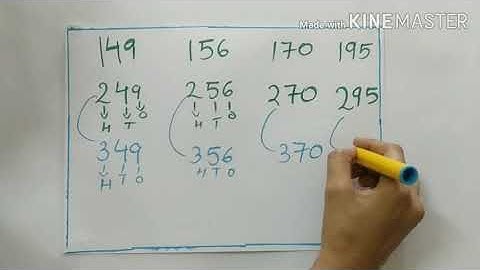 Made with KINEMASTER
149 156 170 195
249 256 270 295
H T O H T O
349 356 370
H T O H T O